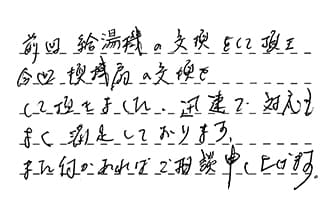 前回 給湯機の交換をして頂き
今回 換気扇の交換を
して頂きました。迅速で対応も
よく満足しております。
また何かあればご相談申し上げます。